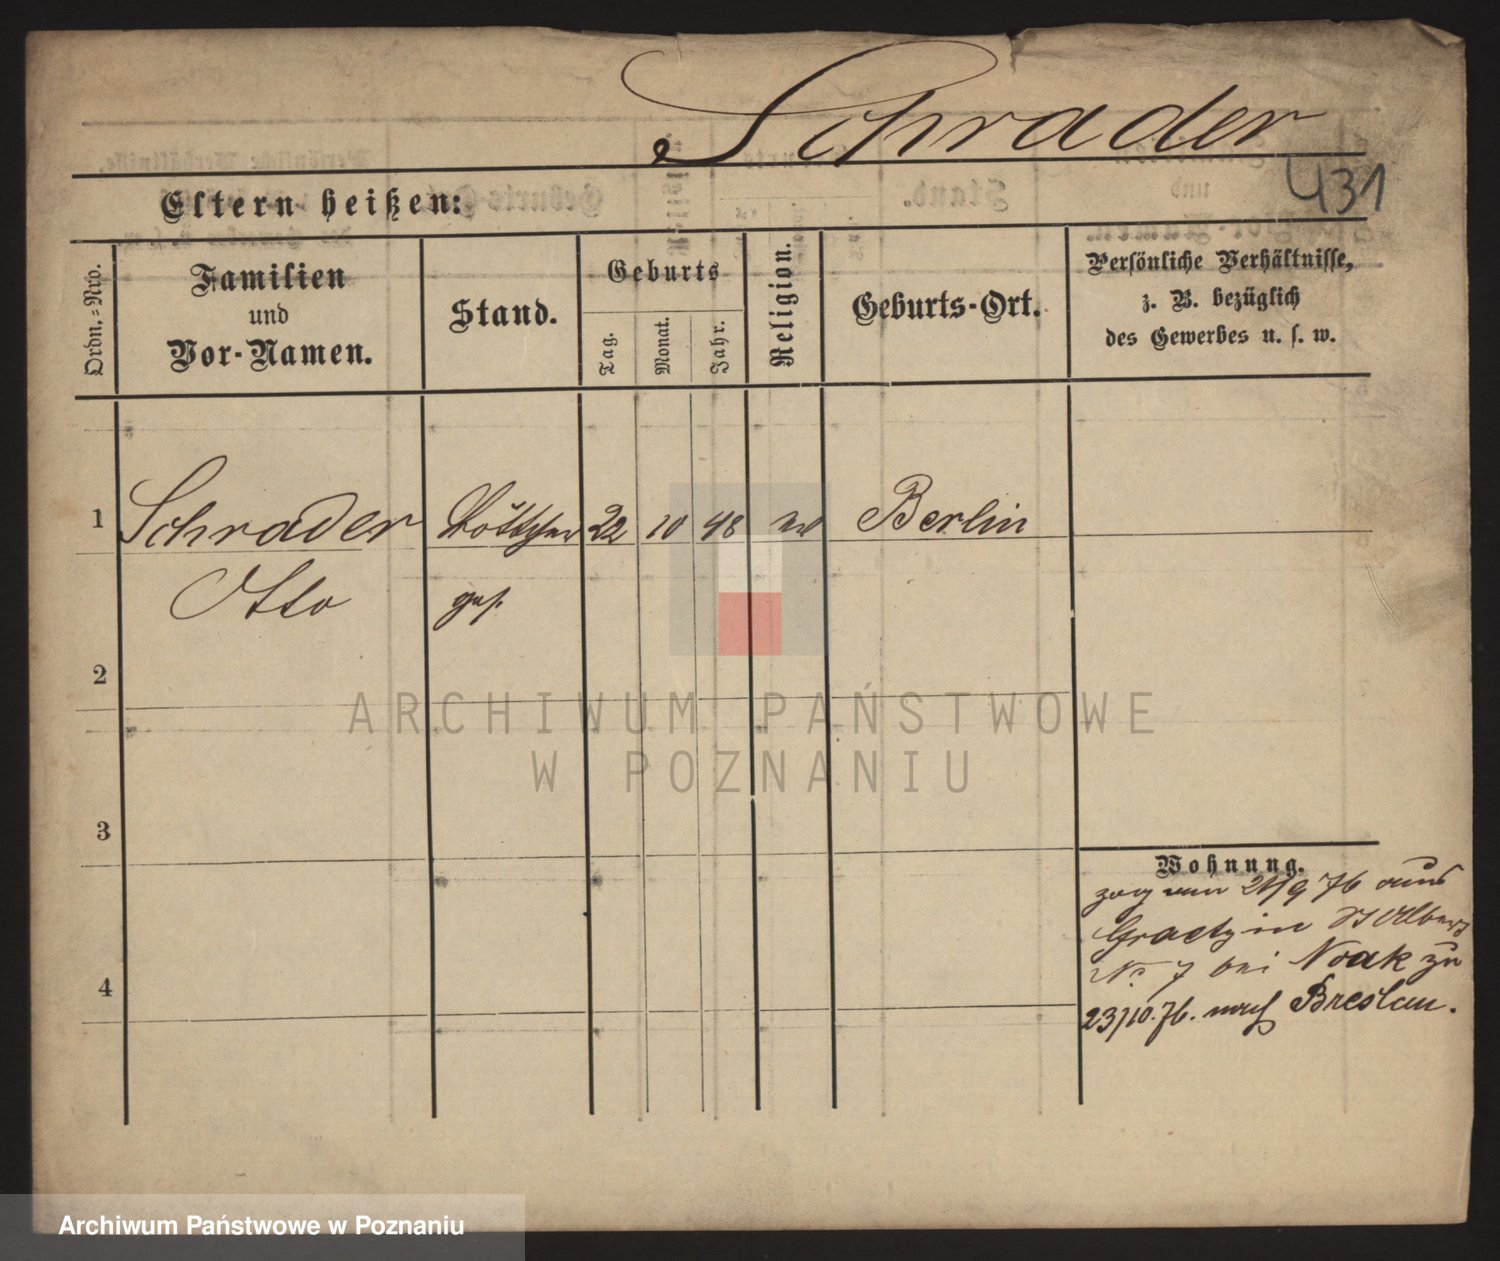 Schrader
431
Eltern heißen:
Ordn.-Nro.
Familien
und
Vor-Namen.
Stand.
Geburts
Tag.
Monat.
Jahr.
Religion.
Geburts-Ort.
Persönliche Verhältnisse,
z. B. bezüglich
des Gewerbes u. s. w.
1 Schrader Böttcher 22 10 48 Berlin
Otto ges.
2
3
4
Wohnung.
zog am 21/9 76 aus
Graetz in
No 7 bei Noak zu
23/10.76. nach Breslau.
ARCHIWUM PAŃSTWOWE
W POZNANIU
Archiwum Państwowe w Poznaniu